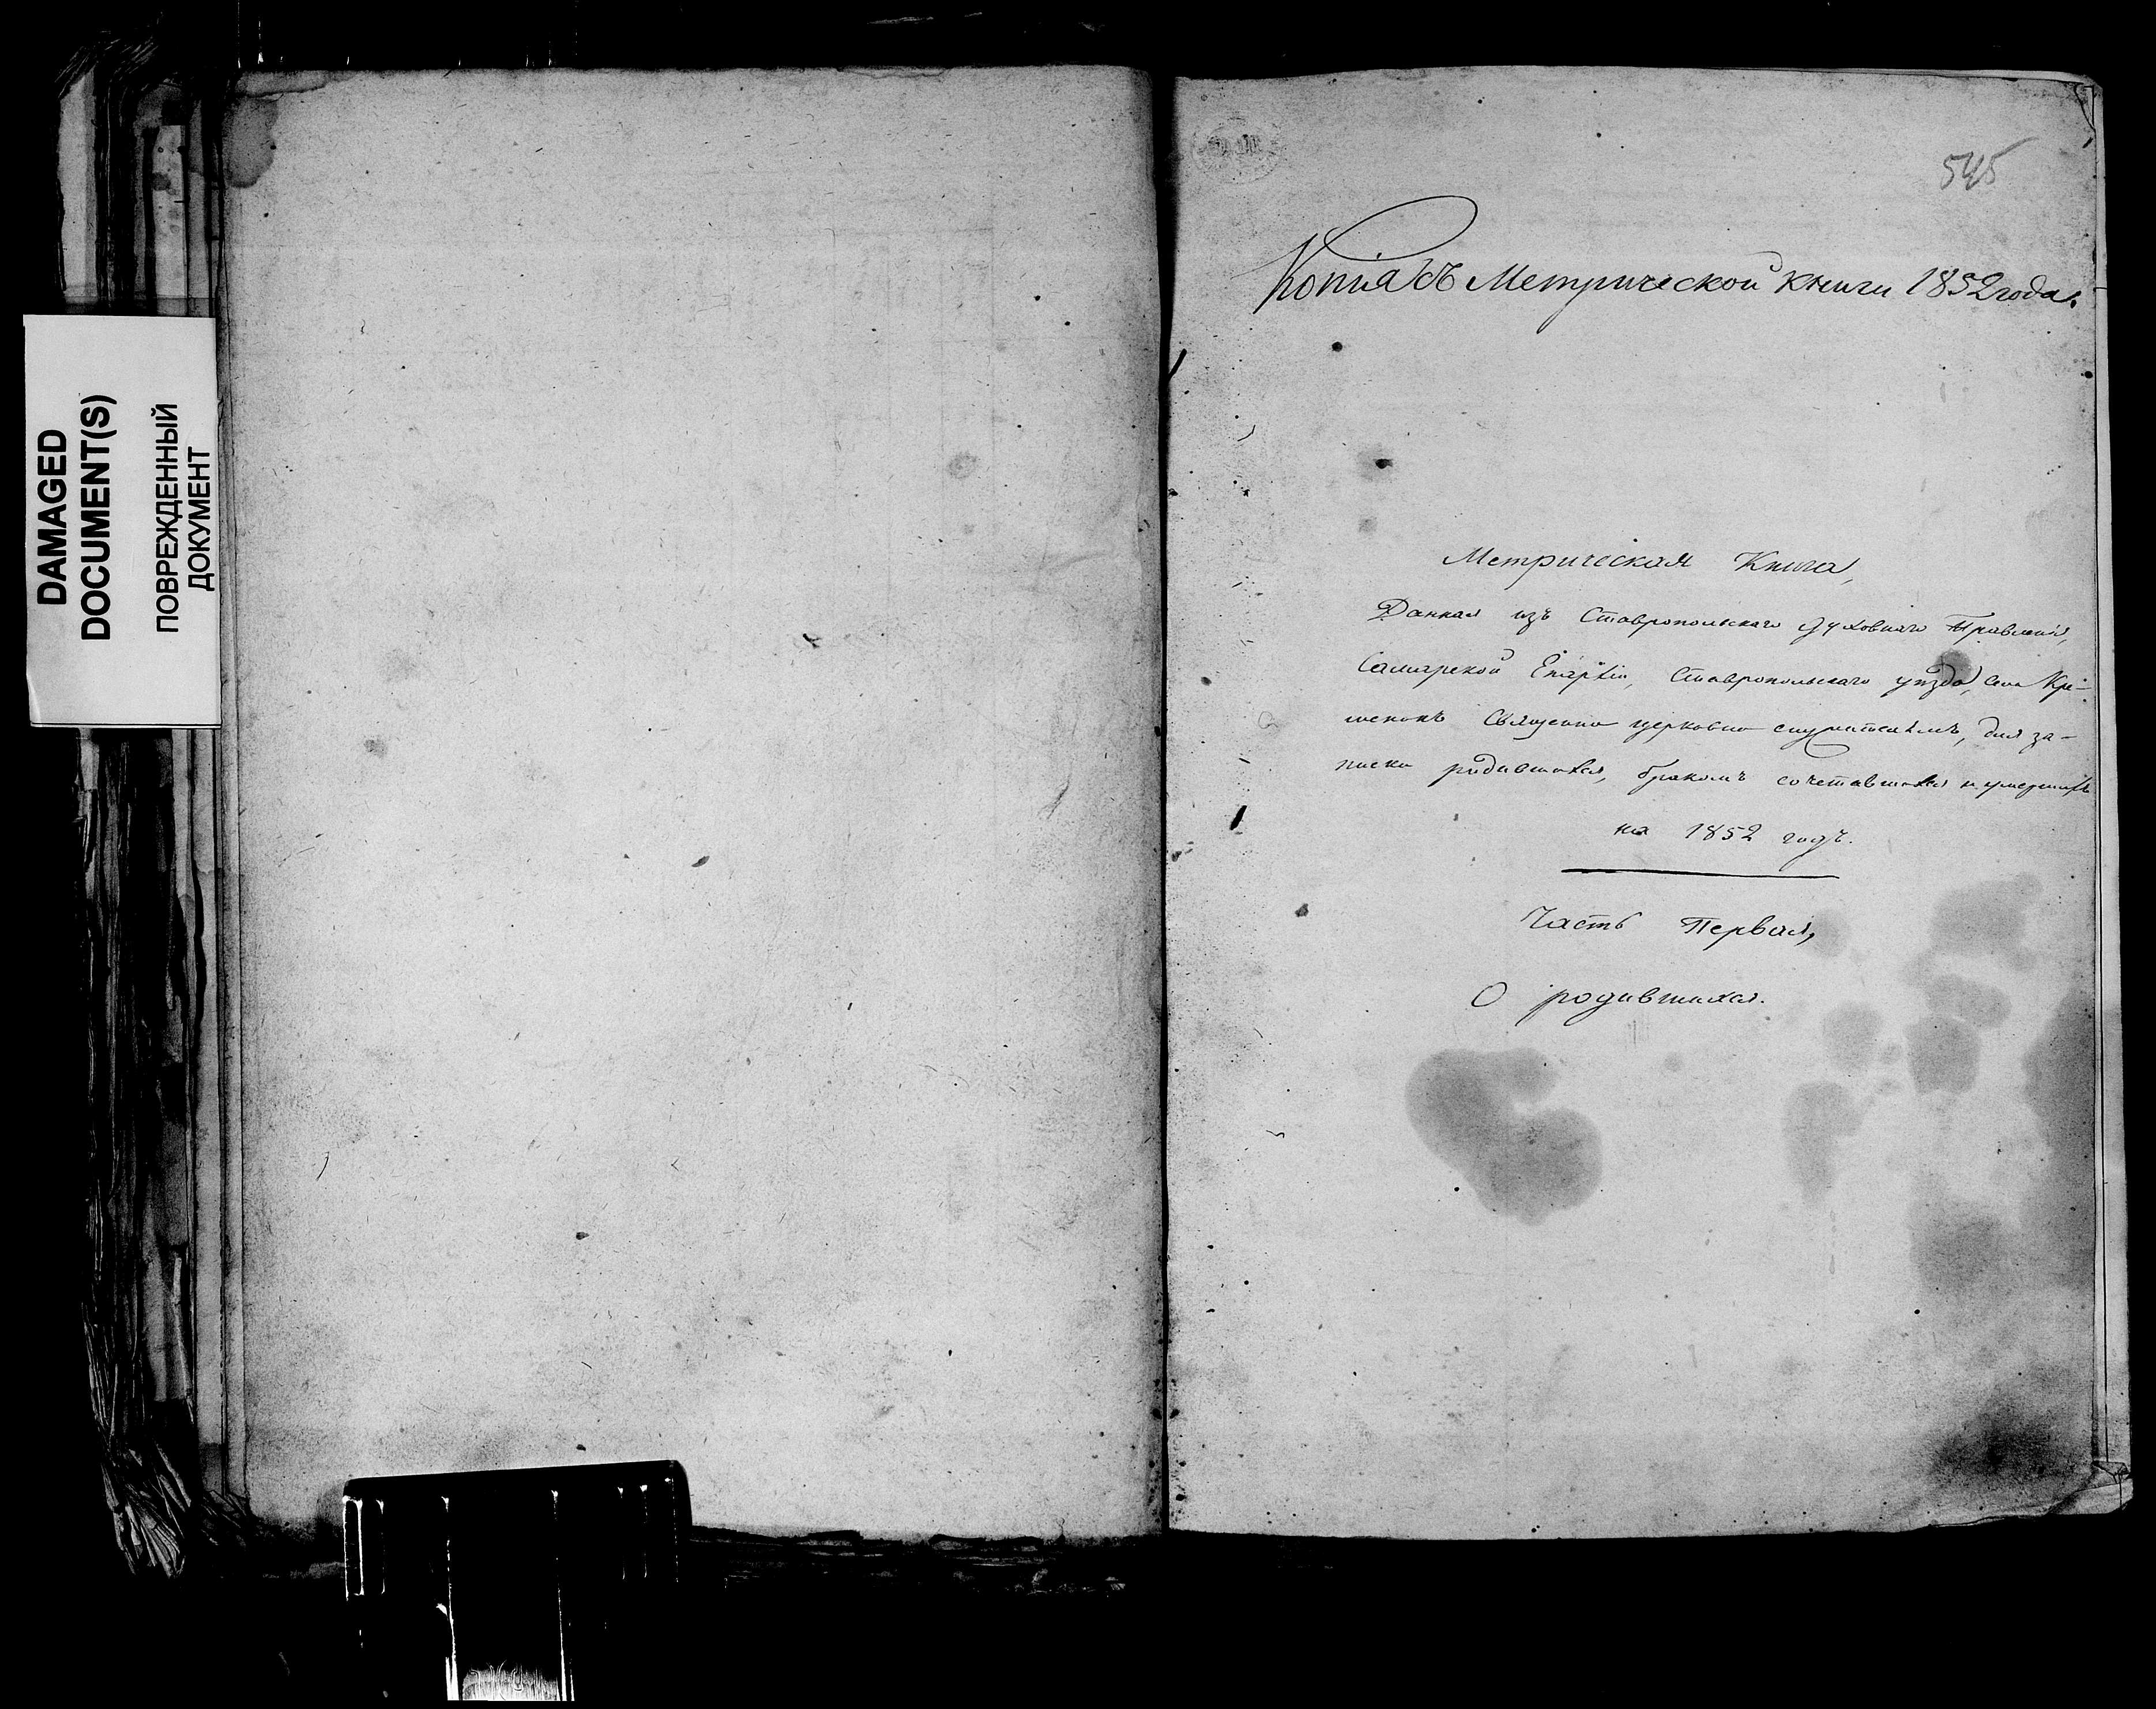 DAMAGED
DOCUMENT(S)
ПОВРЕЖДЕННЫЙ
ДОКУМЕНТ
545
Копія съ Метрической книги 1852 года.
Метрическая Книга,
Данная изъ Ставропольскаго Духовнаго Правленія,
Самарской Епархіи, Ставропольскаго уѣзда, села Кре-
менокъ Священно церковно служителямъ, для за-
писки родившихся, бракомъ сочетавшихся и умершихъ
на 1852 годъ.
Часть Первая,
О родившихся.